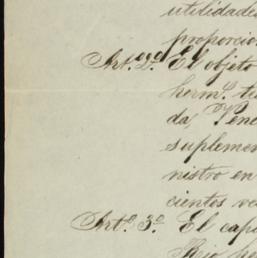 utilidades
proporcio
Art.º 2.º El objeto
herm.s tie
da, Vene
suplemen
nistro en
cientos ve
Art.º 3.º El capi
Rio he